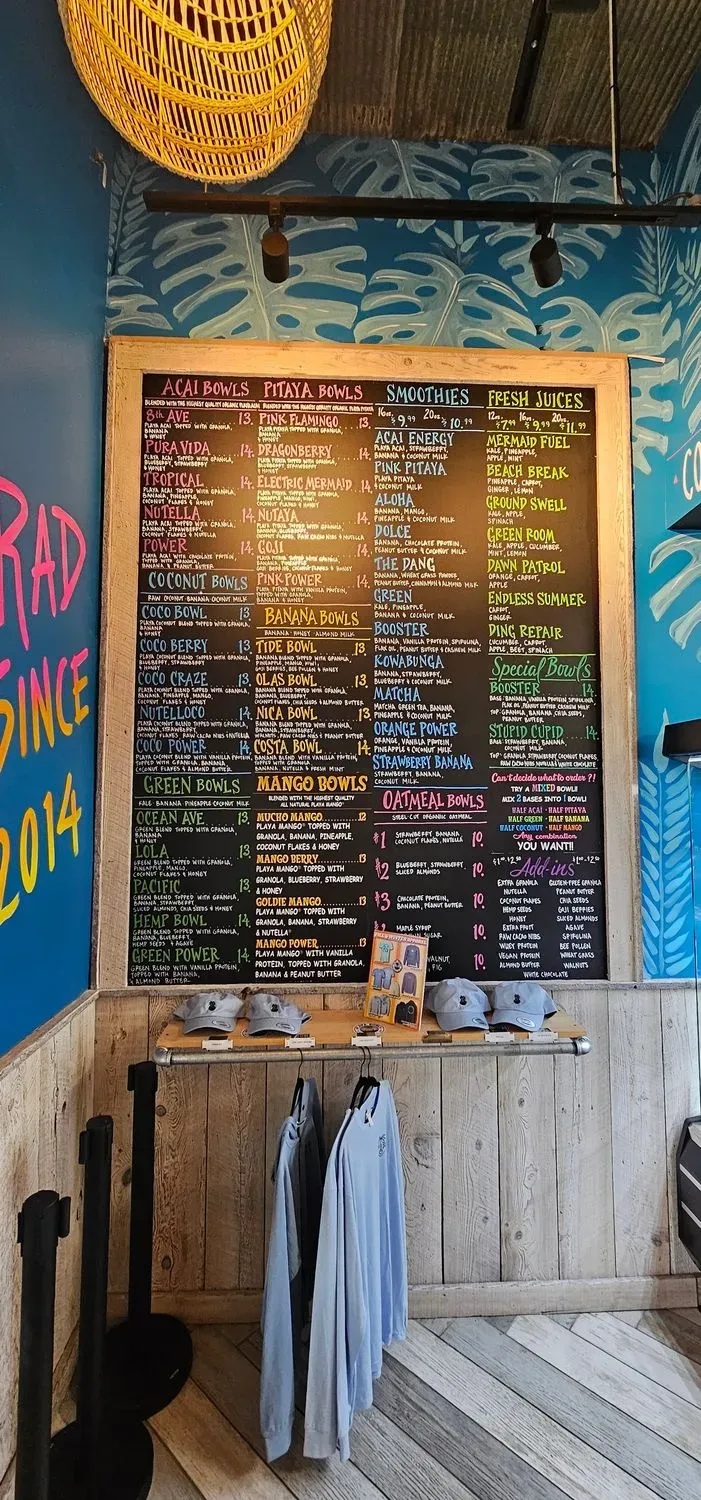 RAD
SINCE
2014
ACAI BOWLS
BLENDED WITH THE HIGHEST QUALITY ORGANIC
8th AVE 13.
PLAYA ACAI TOPPED WITH GRANOLA,
BANANA
& HONEY
PURA VIDA 14.
PLAYA ACAI TOPPED WITH GRANOLA,
BLUEBERRY, STRAWBERRY
& HONEY
TROPICAL 14.
PLAYA ACAI TOPPED WITH GRANOLA,
BANANA, PINEAPPLE,
COCONUT FLAKES & HONEY
NUTELLA 14.
PLAYA ACAI TOPPED WITH GRANOLA,
BANANA, STRAWBERRY,
COCONUT FLAKES & NUTELLA
POWER 14.
PLAYA ACAI WITH CHOCOLATE PROTEIN,
TOPPED WITH GRANOLA,
BANANA & PEANUT BUTTER
COCONUT BOWLS
RAW COCONUT BANANA COCONUT MILK
COCO BOWL 13.
PLAYA COCONUT BLEND TOPPED WITH GRANOLA,
BANANA
& HONEY
COCO BERRY 13.
PLAYA COCONUT BLEND TOPPED WITH GRANOLA,
BLUEBERRY, STRAWBERRY
& HONEY
COCO CRAZE 13.
PLAYA COCONUT BLEND TOPPED WITH GRANOLA,
BANANA, PINEAPPLE, MANGO,
COCONUT FLAKES & HONEY
NUTELLOCO 14.
PLAYA COCONUT BLEND TOPPED WITH GRANOLA,
BANANA, STRAWBERRY,
COCONUT FLAKES, RAW CACAO NIBS & NUTELLA
COCO POWER 14.
PLAYA COCONUT BLEND WITH VANILLA PROTEIN,
TOPPED WITH GRANOLA, BANANA,
COCONUT FLAKES & ALMOND BUTTER
GREEN BOWLS
KALE BANANA PINEAPPLE COCONUT MILK
OCEAN AVE. 13.
GREEN BLEND TOPPED WITH GRANOLA,
BANANA
& HONEY
LOLA 13.
GREEN BLEND TOPPED WITH GRANOLA,
PINEAPPLE, MANGO,
COCONUT FLAKES & HONEY
PACIFIC 13.
GREEN BLEND TOPPED WITH GRANOLA,
BANANA, STRAWBERRY,
SLICED ALMONDS, CHIA SEEDS & HONEY
HEMP BOWL 14.
GREEN BLEND TOPPED WITH GRANOLA,
BANANA, BLUEBERRY,
HEMP SEEDS & AGAVE
GREEN POWER 14.
GREEN BLEND WITH VANILLA PROTEIN,
TOPPED WITH GRANOLA, BANANA,
& ALMOND BUTTER
PITAYA BOWLS
BLENDED WITH THE HIGHEST QUALITY ORGANIC PLAYA PITAYA
PINK FLAMINGO 13.
PLAYA PITAYA TOPPED WITH GRANOLA,
BANANA
& HONEY
DRAGONBERRY 14.
PLAYA PITAYA TOPPED WITH GRANOLA,
BLUEBERRY, STRAWBERRY
& HONEY
ELECTRIC MERMAID 14.
PLAYA PITAYA TOPPED WITH GRANOLA,
PINEAPPLE, MANGO, KIWI,
COCONUT FLAKES & HONEY
NUTAYA 14.
PLAYA PITAYA TOPPED WITH GRANOLA,
BANANA, BLUEBERRY,
COCONUT FLAKES, RAW CACAO NIBS & NUTELLA
GOJI 14.
PLAYA PITAYA TOPPED WITH GRANOLA,
BANANA, PINEAPPLE,
GOJI BERRIES, COCONUT FLAKES & HONEY
PINK POWER 14.
PLAYA PITAYA WITH VANILLA PROTEIN,
TOPPED WITH GRANOLA,
BANANA & HONEY
BANANA BOWLS
BANANA · HONEY · ALMOND MILK
TIDE BOWL 13.
BANANA BLEND TOPPED WITH GRANOLA,
PINEAPPLE, MANGO, KIWI,
GOJI BERRIES, BEE POLLEN & HONEY
OLAS BOWL 13.
BANANA BLEND TOPPED WITH GRANOLA,
BANANA, BLUEBERRY,
COCONUT FLAKES, CHIA SEEDS & ALMOND BUTTER
NICA BOWL 13.
BANANA BLEND TOPPED WITH GRANOLA,
BANANA, STRAWBERRY,
WALNUTS, RAW CACAO & PEANUT BUTTER
COSTA BOWL 14.
BANANA BLEND TOPPED WITH GRANOLA,
BANANA, NUTELLA & FRESH MINT
MANGO BOWLS
BLENDED WITH THE HIGHEST QUALITY
ALL NATURAL PLAYA MANGO
MUCHO MANGO 12
PLAYA MANGO* TOPPED WITH
GRANOLA, BANANA, PINEAPPLE,
COCONUT FLAKES & HONEY
MANGO BERRY 13
PLAYA MANGO* TOPPED WITH
GRANOLA, BLUEBERRY, STRAWBERRY
& HONEY
GOLDIE MANGO 13
PLAYA MANGO* TOPPED WITH
GRANOLA, BANANA, STRAWBERRY
& NUTELLA*
MANGO POWER 13
PLAYA MANGO* WITH VANILLA
PROTEIN, TOPPED WITH GRANOLA,
BANANA & PEANUT BUTTER
SMOOTHIES
16oz. $9.99 20oz. $10.99
ACAI ENERGY
PLAYA ACAI, STRAWBERRY,
BANANA & COCONUT MILK
PINK PITAYA
PLAYA PITAYA
& COCONUT MILK
ALOHA
BANANA, MANGO,
PINEAPPLE & COCONUT MILK
DOLCE
BANANA, CHOCOLATE PROTEIN,
PEANUT BUTTER & COCONUT MILK
THE DANG
BANANA, WHEAT GRASS POWDER,
PEANUT BUTTER, CINNAMON & ALMOND MILK
GREEN
KALE, PINEAPPLE,
BANANA & COCONUT MILK
BOOSTER
BANANA, VANILLA PROTEIN, SPIRULINA,
FLAX OIL, PEANUT BUTTER & CASHEW MILK
KOWABUNGA
BANANA, STRAWBERRY,
BLUEBERRY & COCONUT MILK
MATCHA
MATCHA GREEN TEA, BANANA,
PINEAPPLE & COCONUT MILK
ORANGE POWER
ORANGE, VANILLA PROTEIN,
PINEAPPLE & COCONUT MILK
STRAWBERRY BANANA
STRAWBERRY, BANANA,
COCONUT MILK
OATMEAL BOWLS
STEEL CUT ORGANIC OATMEAL
#1 STRAWBERRY, BANANA 10.
COCONUT FLAKES, NUTELLA
#2 BLUEBERRY, STRAWBERRY, 10.
SLICED ALMONDS
#3 CHOCOLATE PROTEIN, 10.
BANANA, PEANUT BUTTER
MAPLE SYRUP 10.
SUGAR
10.
FRESH JUICES
12oz. $7.99 16oz. $9.99 20oz. $11.99
MERMAID FUEL
KALE, PINEAPPLE,
APPLE, MINT
BEACH BREAK
PINEAPPLE, CARROT,
GINGER, LEMON
GROUND SWELL
KALE, APPLE,
SPINACH
GREEN ROOM
KALE, APPLE, CUCUMBER,
MINT, LEMON
DAWN PATROL
ORANGE, CARROT,
APPLE
ENDLESS SUMMER
CARROT,
GINGER
DING REPAIR
CUCUMBER, CARROT,
APPLE, BEET, SPINACH
Special Bowls
BOOSTER 14.
BASE: BANANA, VANILLA PROTEIN, SPIRULINA,
FLAX OIL, PEANUT BUTTER, CASHEW MILK
TOP: GRANOLA, BANANA, CHIA SEEDS,
PEANUT BUTTER
STUPID CUPID 14.
BASE: STRAWBERRY, BANANA,
COCONUT MILK
TOP: GRANOLA, STRAWBERRY, COCONUT FLAKES,
RAW CACAO NIBS, NUTELLA & WHITE CHOCOLATE
Can't decide what to order?!
TRY A MIXED BOWL!!
MIX 2 BASES INTO 1 BOWL!
HALF ACAI · HALF PITAYA
HALF GREEN · HALF BANANA
HALF COCONUT · HALF MANGO
Any combination
YOU WANT!!
Add-ins
EXTRA GRANOLA
NUTELLA
COCONUT FLAKES
HEMP SEEDS
HONEY
EXTRA FRUIT
RAW CACAO NIBS
WHEY PROTEIN
VEGAN PROTEIN
ALMOND BUTTER
GLUTEN-FREE GRANOLA
PEANUT BUTTER
CHIA SEEDS
GOJI BERRIES
SLICED ALMONDS
AGAVE
SPIRULINA
BEE POLLEN
WHEAT GRASS
WALNUTS
WHITE CHOCOLATE